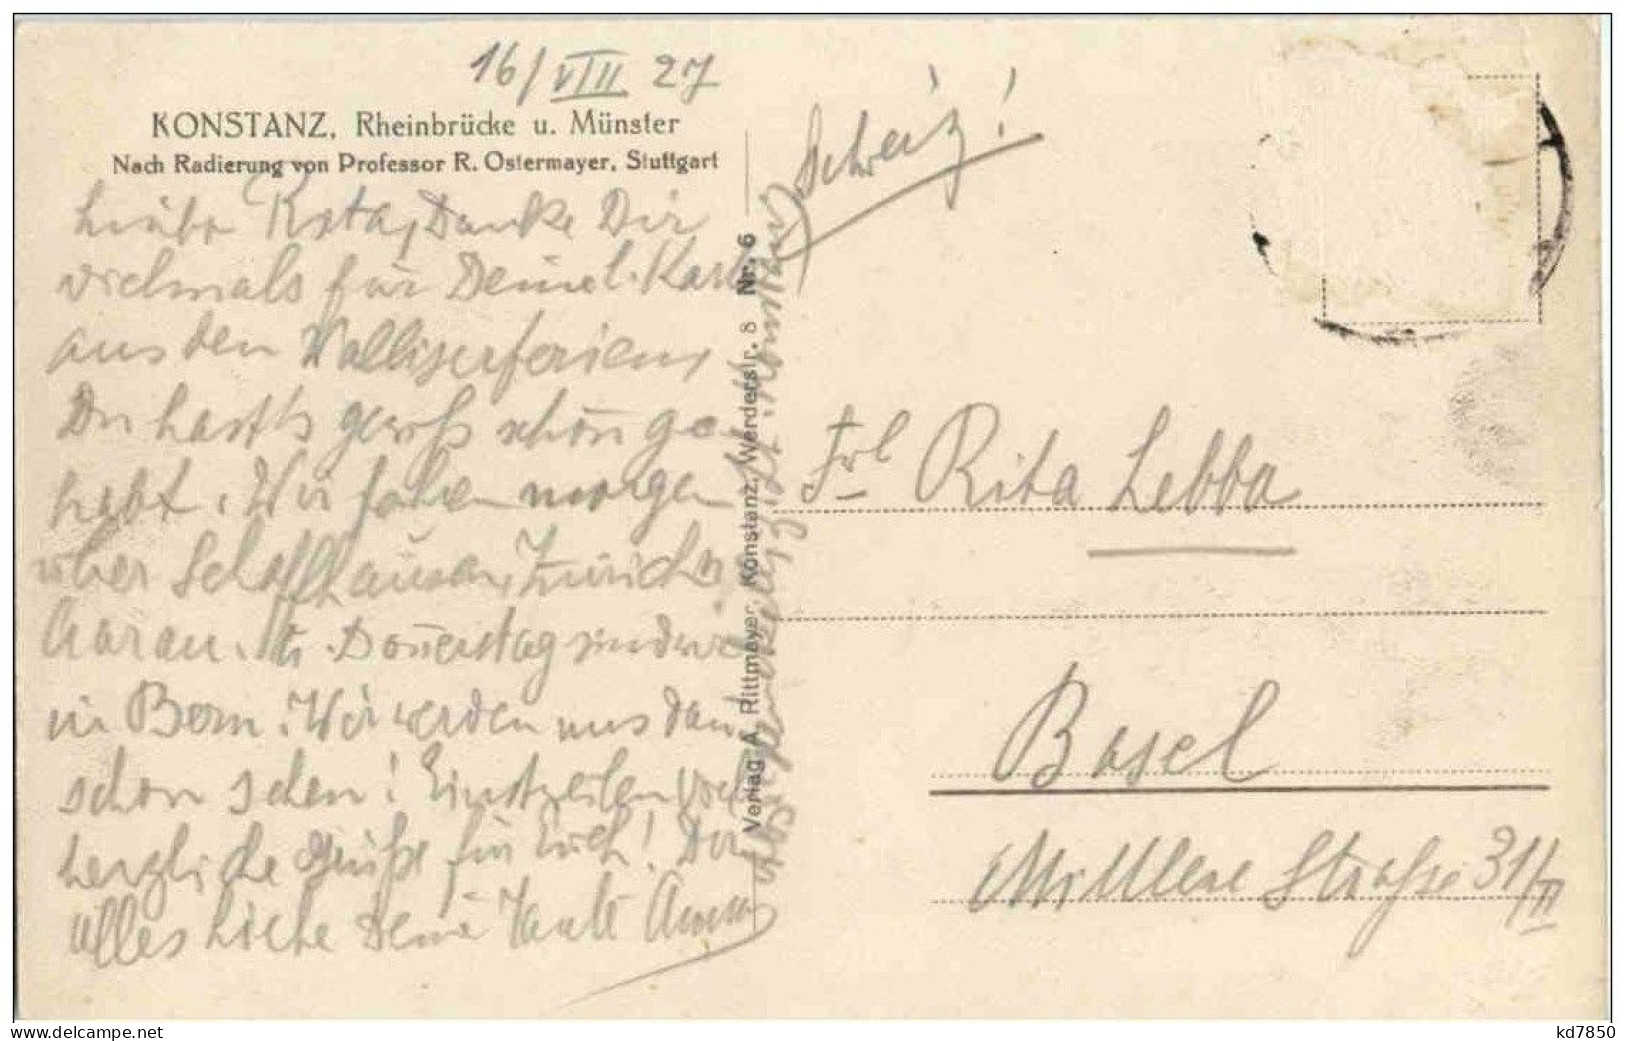 16/VIII 27
KONSTANZ, Rheinbrücke u. Münster
Nach Radierung von Professor R. Ostermayer, Stuttgart
Liebe Rita, Danke Dir
vielmals für Deine l. Karte
aus den Walliserferien,
Du hast's gewiß schön ge-
habt. Wir fahren morgen
über Schaffhausen, Zürich n.
Aarau. Donnerstag sind wir
in Bern. Wir werden uns dann
schon sehen! Einstweilen
herzliche Grüße für Euch! Dir
alles Liebe Deine Tante
Verlag A. Rittmayer, Konstanz, Werderstr. 8 Nr. 6
Schweiz!
Frl Rita Lebba
Basel
Mittlere Straße 31/II
www.delcampe.net
kd7850